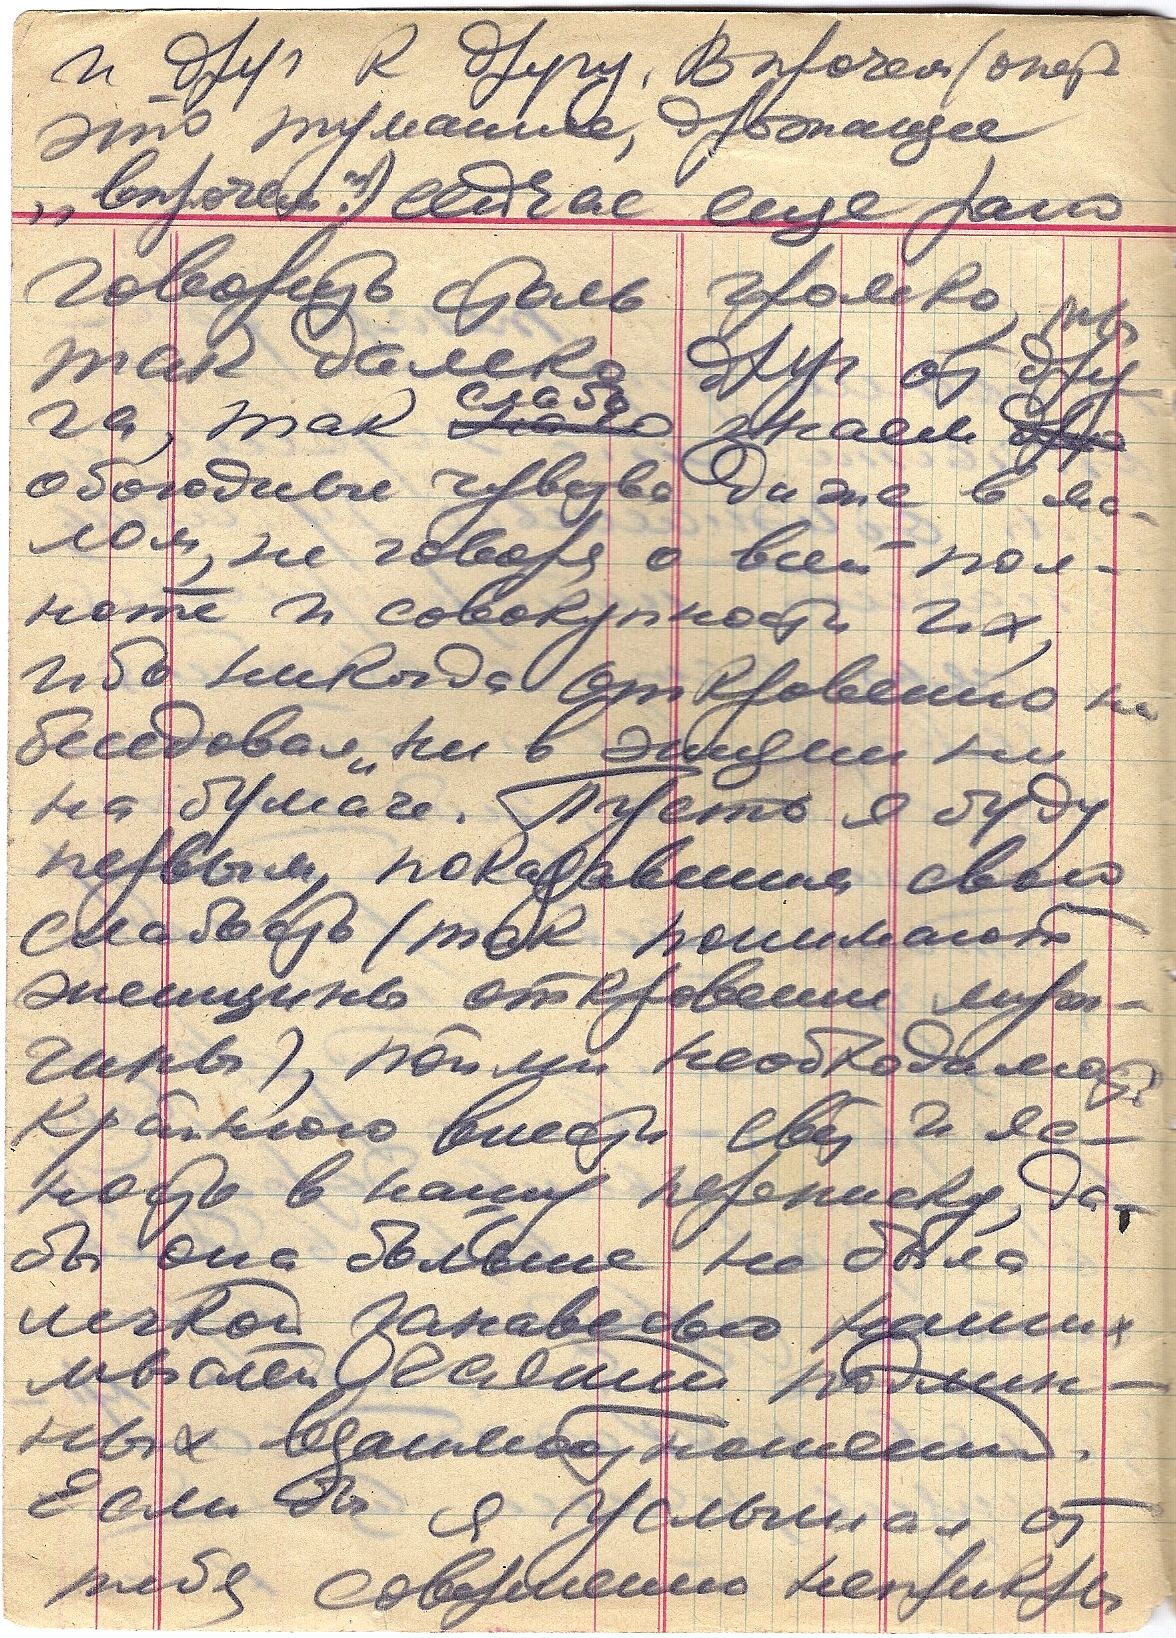 и друг к другу. Впрочем (опять
это туманное, дрожащее
„впрочем"!) сейчас еще рано
говорить столь громко, мы
так далеко друг от дру-
га, так слабо знаем
обоюдные чувства даже в ма-
лом, не говоря о всей пол-
ноте и совокупности их,
ибо никогда откровенно не
беседовали ни в жизни ни
на бумаге. Пусть я буду
первым, показавшим свою
слабость (так понимают
женщины откровения муж-
чины), пойми необходимость
крайнюю внести свет и яс-
ность в нашу переписку, да-
бы она больше не была
легкой занавесью наших
мыслей, желаний, подлин-
ных взаимоотношений.
Если бы я услышал от
тебя совершенно неприкры